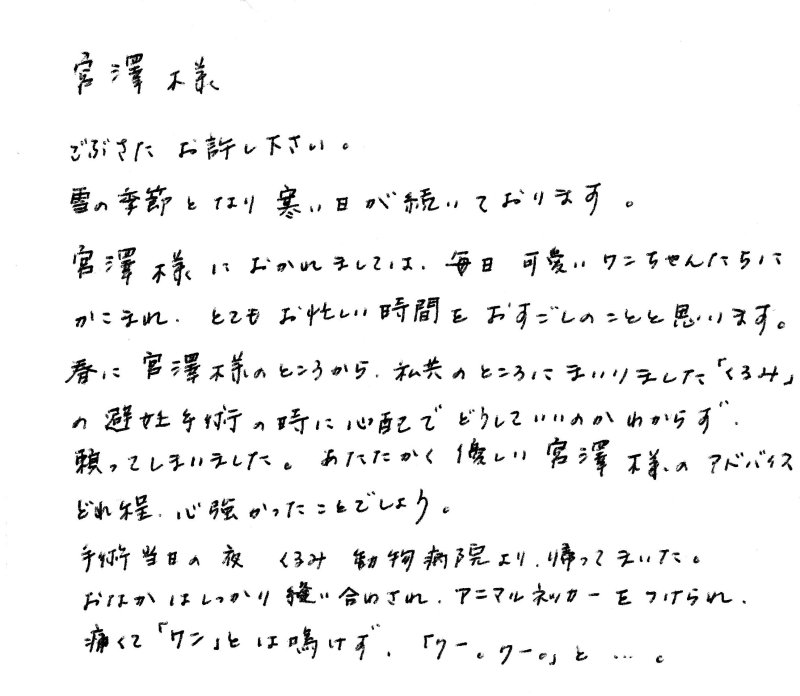 宮澤様
ごぶさた お許し下さい。
雪の季節となり寒い日が続いております。
宮澤様におかれましては、毎日可愛いワンちゃんたちに
かこまれ、とてもお忙しい時間をおすごしのことと思います。
春に宮澤様のところから、私共のところにまいりました「くるみ」
の避妊手術の時に心配でどうしていいのかわからず、
頼ってしまいました。あたたかく優しい宮澤様のアドバイス
どれ程、心強かったことでしょう。
手術当日の夜 くるみ 動物病院より、帰ってまいた。
おなかはしっかり縫い合わされ、アニマルネッカーをつけられ、
痛くて「ワン」とは鳴けず、「ワー。ワー。」と…。